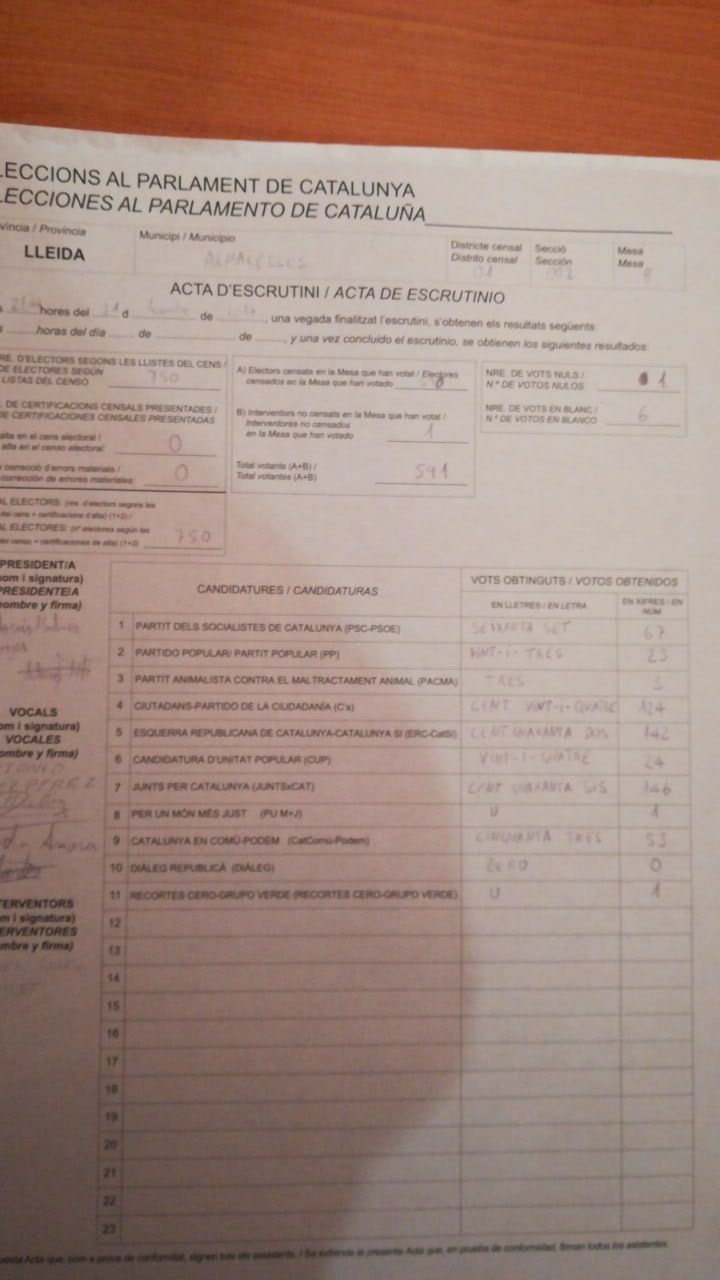 LECCIONS AL PARLAMENT DE CATALUNYA
LECCIONES AL PARLAMENTO DE CATALUÑA
víncia / Provincia
LLEIDA
Municipi / Municipio
ALMACELLES
Districte censal
Distrito censal
01
Secció
Sección
002
Mesa
Mesa
B
ACTA D'ESCRUTINI / ACTA DE ESCRUTINIO
hores del 21 d de, una vegada finalitzat l'escrutini, s'obtenen els resultats següents:
horas del día de de, y una vez concluido el escrutinio, se obtienen los siguientes resultados:
RE. D'ELECTORS SEGONS LES LLISTES DEL CENS /
DE ELECTORES SEGÚN
LISTAS DEL CENSO 750
. DE CERTIFICACIONS CENSALS PRESENTADES /
DE CERTIFICACIONES CENSALES PRESENTADAS
alta en el cens electoral /
alta en el censo electoral: 0
correcció d'errors materials /
corrección de errores materiales: 0
AL ELECTORS: (nre. d'electors segons les
del cens + certificacions d'alta) (1+2) /
AL ELECTORES: (nº electores según las
del censo + certificaciones de alta) (1+2) 750
A) Electors censats en la Mesa que han votat / Electores
censados en la Mesa que han votado
B) Interventors no censats en la Mesa que han votat /
Interventores no censados
en la Mesa que han votado 1
Total votants (A+B) /
Total votantes (A+B) 591
NRE. DE VOTS NULS /
N.º DE VOTOS NULOS 1
NRE. DE VOTS EN BLANC /
N.º DE VOTOS EN BLANCO 6
PRESIDENT/A
nom i signatura)
PRESIDENTE/A
nombre y firma)
VOCALS
om i signatura)
VOCALES
ombre y firma)
TERVENTORS
m i signatura)
ERVENTORES
mbre y firma)
CANDIDATURES / CANDIDATURAS
VOTS OBTINGUTS / VOTOS OBTENIDOS
EN LLETRES / EN LETRA
EN XIFRES / EN NÚM.
1 PARTIT DELS SOCIALISTES DE CATALUNYA (PSC-PSOE) SEIXANTA SET 67
2 PARTIDO POPULAR/ PARTIT POPULAR (PP) VINT-I-TRES 23
3 PARTIT ANIMALISTA CONTRA EL MALTRACTAMENT ANIMAL (PACMA) TRES 3
4 CIUTADANS-PARTIDO DE LA CIUDADANÍA (C's) CENT VINT-I-QUATRE 124
5 ESQUERRA REPUBLICANA DE CATALUNYA-CATALUNYA SÍ (ERC-CatSí) CENT QUARANTA DOS 142
6 CANDIDATURA D'UNITAT POPULAR (CUP) VINT-I-QUATRE 24
7 JUNTS PER CATALUNYA (JUNTSxCAT) CENT QUARANTA SIS 146
8 PER UN MÓN MÉS JUST (PU M+J) U 1
9 CATALUNYA EN COMÚ-PODEM (CatComú-Podem) CINQUANTA TRES 53
10 DIÀLEG REPUBLICÀ (DIÀLEG) ZERO 0
11 RECORTES CERO-GRUPO VERDE (RECORTES CERO-GRUPO VERDE) U 1
12
13
14
15
16
17
18
19
20
21
22
23
uesta Acta que, com a prova de conformitat, signen tots els assistents. / Se extiende la presente Acta que, en prueba de conformidad, firman todos los asistentes.